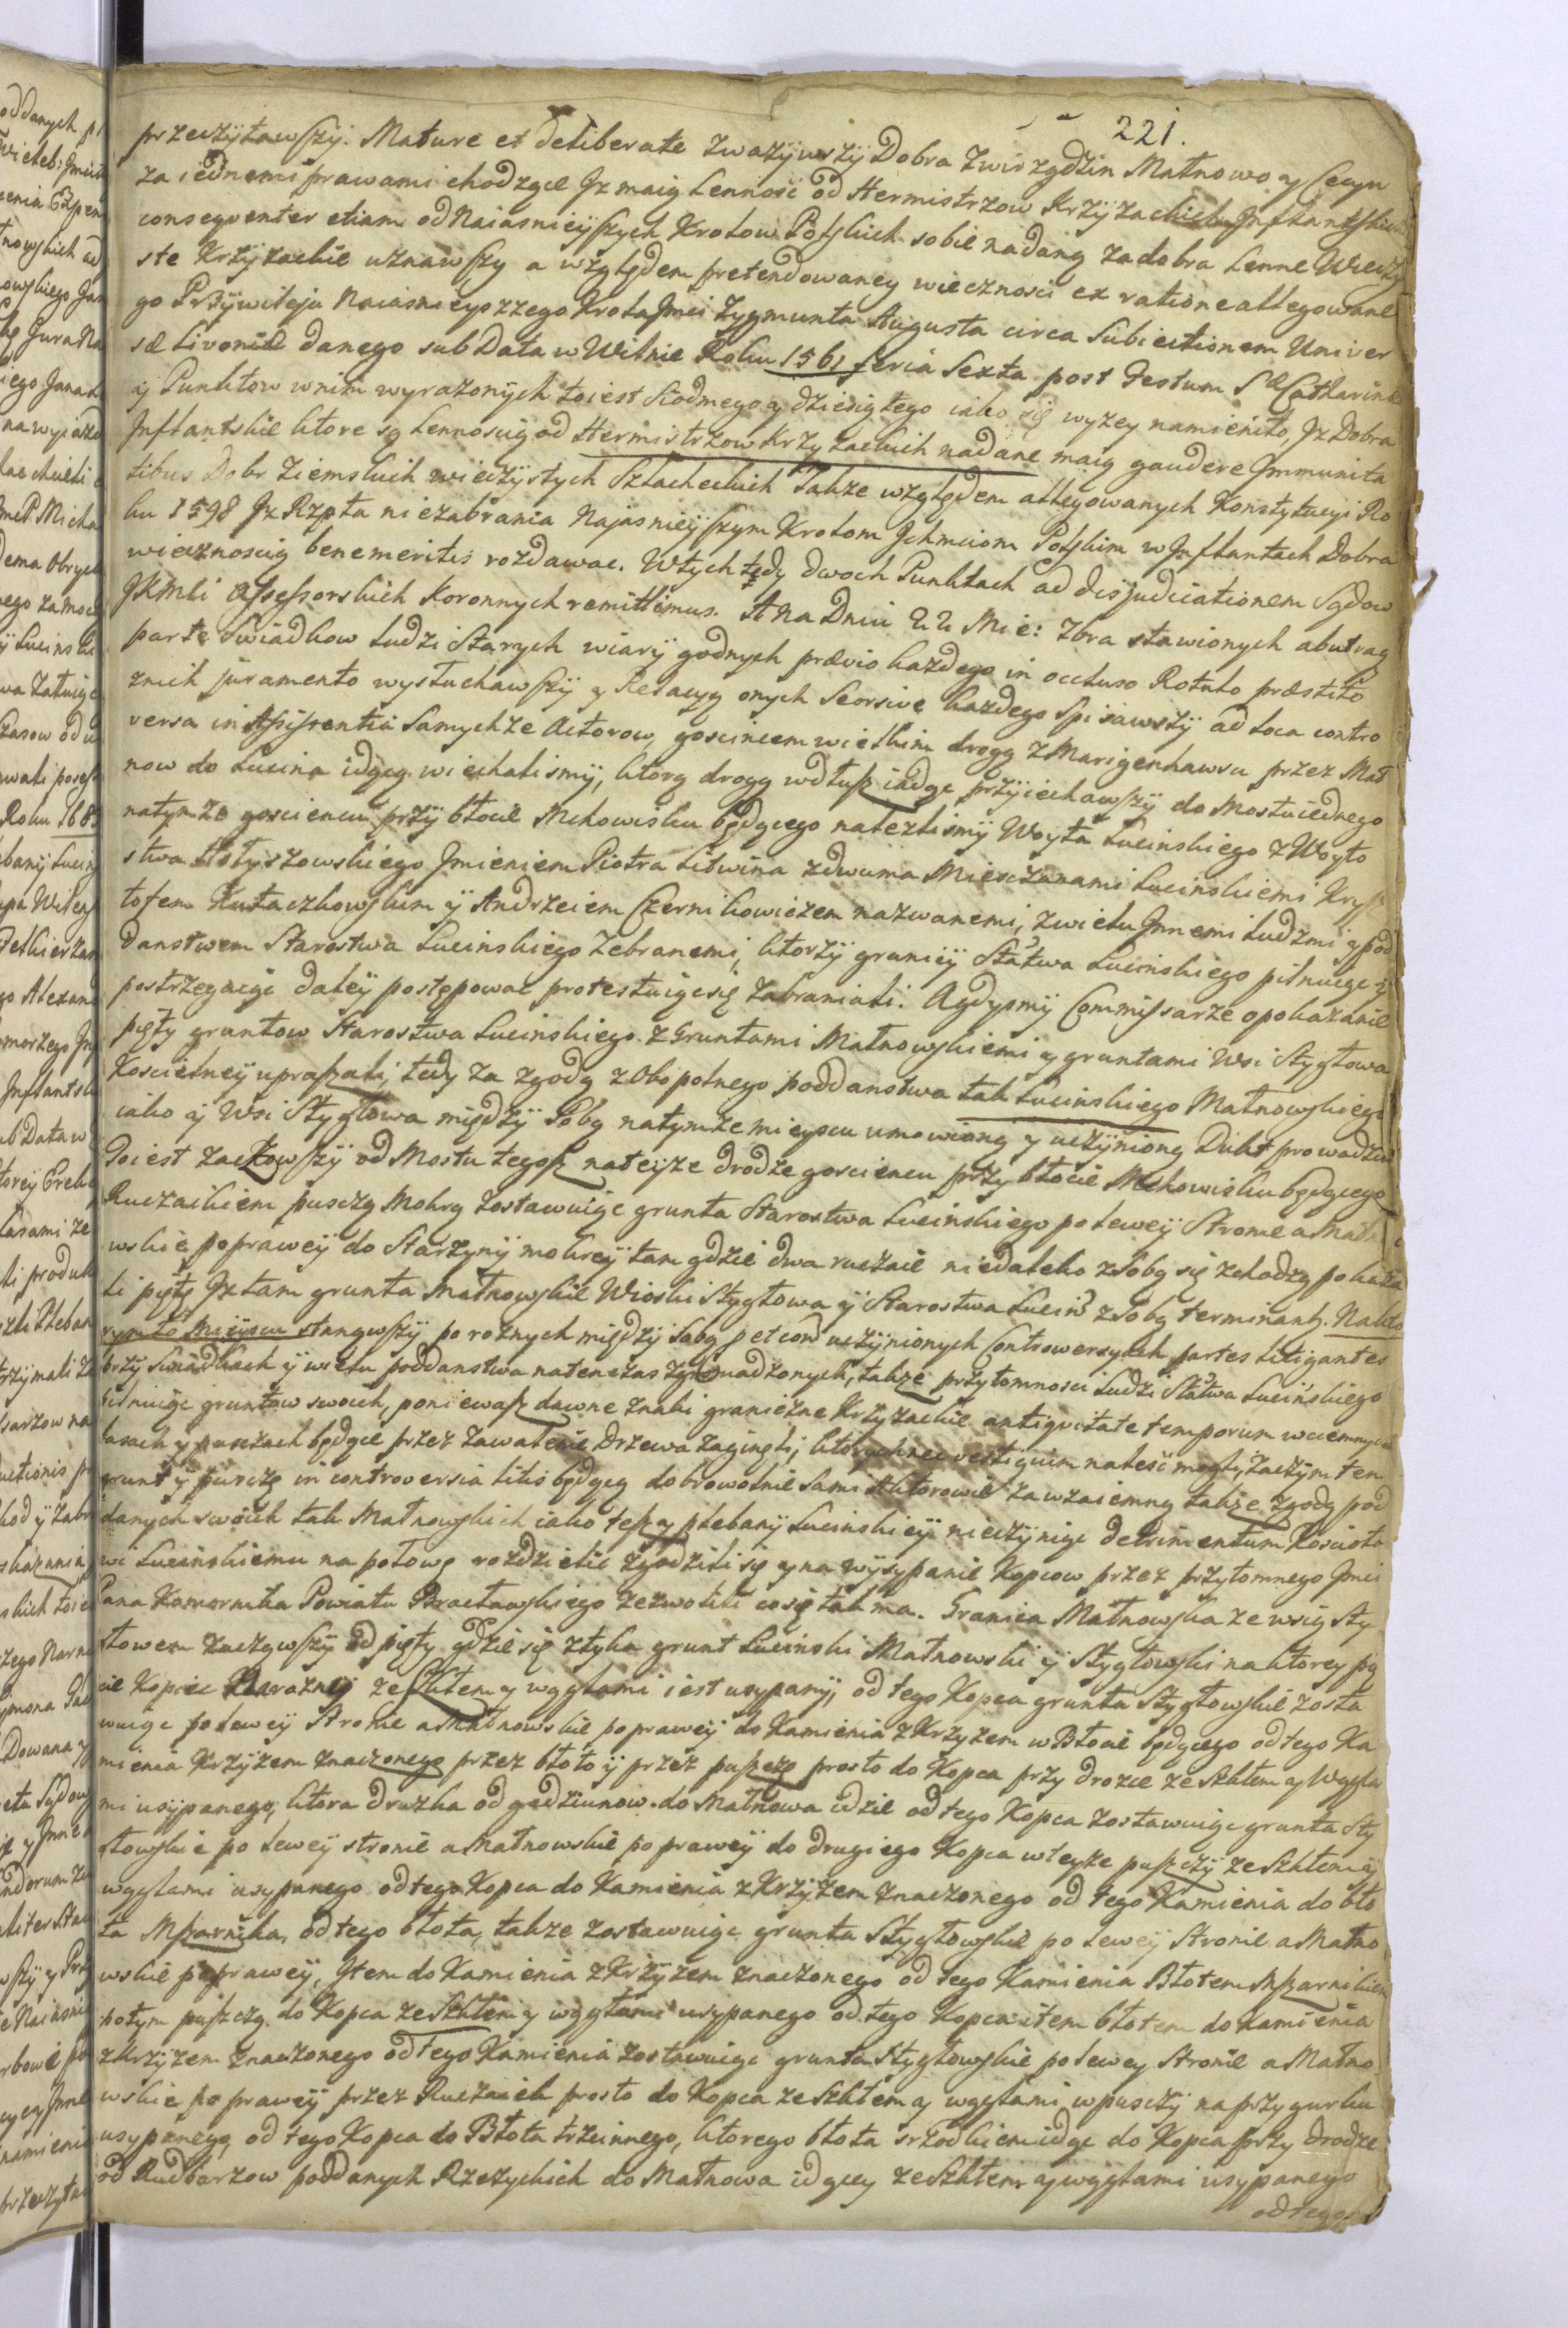 221.
przeczÿtawszÿ. Mature et deliberate zwazÿwszÿ Dobra Zwirzgdzin Małnowo y
za iednemi prawami chodzące Jz maią Lennosć od Hermistrzow Krzÿzackich Jnflantskich
conseqventer etiam od Naiasnieÿszych Krolow Polskich sobie nadaną za dobra Lenne Wieczÿ
ste Krzÿzackie uznawszy a względem pretendowaney wiecznosci ex ratione allegowane
go Przÿwileju Naiasnieyszzego Krola Jmci Zygmunta Augusta circa Subiectionem Univer
sæ Livoniæ danego sub Data w Wilnie Roku 1561 feria Sexta post Festum S. Catharinæ
ÿ Punktow w nim wyrazonÿch toiest Siodmego y dziesiątego iako się wyzey namieniło, Jz Dobra
Jnflantskie ktore są Lennoscią od Hermistrzow Krzyzackich nadane maią gaudere Jmmunita
tibus Dobr Ziemskich wieczÿstych Szlacheckich Takze względem allegowanych Konstytucyi Ro
ku 1598 Jz Rzpta niezabrania Najasnieÿszym Krolom Jchmciom Polskim w Jnflantach Dobra
wiecznoscią benemeritis rozdawac. Wtych tedy dwoch Punktach ad disjudicationem Sądow
JKMci Assessorskich Koronnych remittimus. A na Dniu 22 Mie: 7bra stawionych ab utraq
parte Swiadkow Ludzi Starych wiarÿ godnych prævio kazdego in occluso Rotulo præstito
znich juramento wysłuchawszÿ y Relacyą onych Seorsive kazdego spisawszÿ ad Loca contro
versa in Assistentia Samychze Actorow, goscincem wielkim drogą z Marigenhawsu przez Mał
now do Lucina idącą wiechalismÿ, ktorą drogą wdłusz iadąc przÿiechawszÿ do Mostu iednego
natymze gosciencu przÿ błocie Mchowisku będącego nalezlismÿ Woyta Lucinskiego z Woyto
stwa Jmieniem Piotra Litwina zdwuma Miesczanami Lucinskiemi Krysz
tofem Kułaczkowskim ÿ Andrzeiem Czernikowiczem nazwanemi, zwielu Jnnemi Ludzmi y pod
danstwem Starostwa Lucinskiego zebranemi, ktorzÿ granicÿ Stastwa Lucinskiego pilnuiąc ÿ
postrzegaiąc daleÿ postępowac protestuiąc się zabraniali. A gdysmÿ Commissarze o pokazanie
pięty gruntow Starostwa Lucinskiego z Gruntami Małnowskiemi y gruntami Wsi Stygłowa
Koscielneÿ upraszali, tedy za zgodą z Obopolnego poddanstwa tak Lucinskiego Małnowskiego
iako ÿ Wsi Stygłowa międzÿ Sobą natymze mieyscu umowioną y uczÿnioną Dukt prowadzili
Toiest zaczowszÿ od Mostu tegosz nateÿze drodze gosciencu przy błocie Mchowisku będącego
Ruczaikiem pusczą Mokrą zostawuiąc grunta Starostwa Lucinskiego po Leweÿ Stronie a Małno
wskie po praweÿ do Starzÿnÿ mokreÿ tam gdzie dwa ruczaie niedaleko z Sobą się zchodzą pokaza
li piętę Jz tam grunta Małnowskie Wioski Stygłowa ÿ Starostwa Lucins z Sobą terminantᵣ. Nakto
rymto Mieÿscu stanąwszÿ po roznych międzÿ Sobą uczÿnionych Controwersyach partes litigantes
przÿ Swiadkach ÿ wielu poddanstwa natenczas zgromadzonych, takze przytomnosci Ludzi Stastwa Lucinskiego
pilnuiąc gruntow swoich, poniewasz dawne znaki graniczne Krzyzackie antiqvitate temporum wciemnych
Lasach y pusczach będące przez zawalenie Drzewa zaginęli, ktorych nec vestigium naleść mogli, Zaczÿm ten
grunt ÿ pusczę in controversia litis będącą dobrowolnie Sami Aktorowie za wzaiemną takze zgodą pod
danych swoich tak Małnowskich iako tesz y plebanÿ Lucinskieÿ nieczÿniąc detrimentum Koscioło
wi Lucinskiemu na połowę rozdzielic zgodzili się y na wÿsypanie Kopcow przez przytomnego Jmci
Pana Kamornika Powiatu Bracławskiego zezwolili co się tak ma. Granica Małnowska ze wsią Sty
głowem zacząwszÿ od pięty gdzie się ztyka grunt Lucinski Małnowski ÿ Stygłowski naktorey pię
cie Kopiec ze Szkłem y węglami iest usypanÿ, od tego Kopca grunta Stygłowskie zosta
wuiąc poleweÿ Stronie a Małnowskie popraweÿ do Kamienia z Krzyzem w Błocie będącego od tego Ka
mienia Krzÿzem znaczonego przez błoto ÿ przez puszczę prosto do Kopca przy drozce ze Szkłem y Węgla
mi usÿpanego, ktora druzka od gadziunow do Małnowa idzie od tego Kopca zostawuiąc grunta Sty
głowskie po lewey stronie a Małnowskie po praweÿ do drugiego Kopca wteyze puszczÿ ze Szkłem ÿ
węglami usypanego od tego Kopca do Kamienia z Krzÿzem znaczonego od tego Kamienia do bło
ta Mszarnika, od tego błota, takze zostawuiąc grunta Stygłowskie po Lewey Stronie a Małno
wskie popraweÿ, Jtem do Kamienia z Krzÿzem znaczonego od tego Kamienia Błotem Mszarnikiem
potym puszczą do Kopca ze Szkłem y węglami usypanego od tego Kopca item błotem do Kamienia
z Krzÿzem znaczonego od Tego Kamienia zostawuiąc grunta Stygłowskie polewey Stronie a Małno
wskie po praweÿ przez Ruczaiek prosto do Kopca ze Szkłem y węglami w pusczÿ na przygurku
usypanego, od tego Kopca do Błota trzcinnego, ktorego błota srzodkiem idąc do Kopca przy drodze
od Rudbarzow poddanych Rzezyckich do Małnowa idącey ze Szkłem y węglami usypanego
od tego